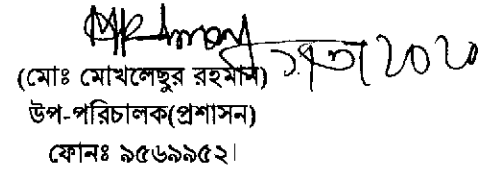 (মোঃ মোখলেছুর রহমান)
উপ-পরিচালক(প্রশাসন)
ফোনঃ ৯৫৬৯৯৫২।